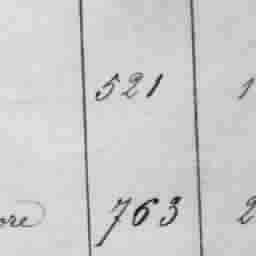 521 1
763 2